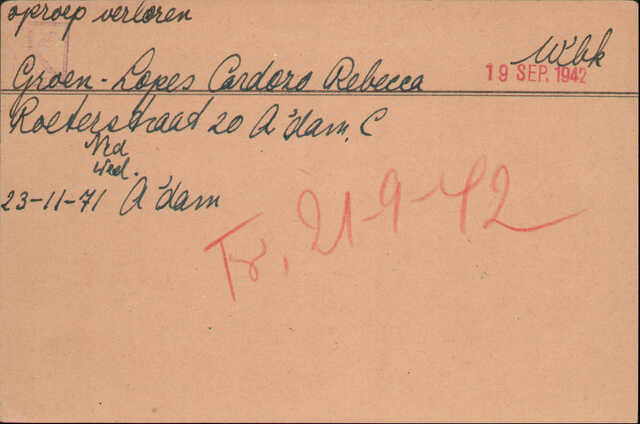 oproep verloren
Wbk
19 SEP. 1942
Groen-Lopes Cardozo Rebecca
Roeterstraat 20 A'dam. C
Nrd
wed.
23-11-71 A'dam
Tr. 21-9-42